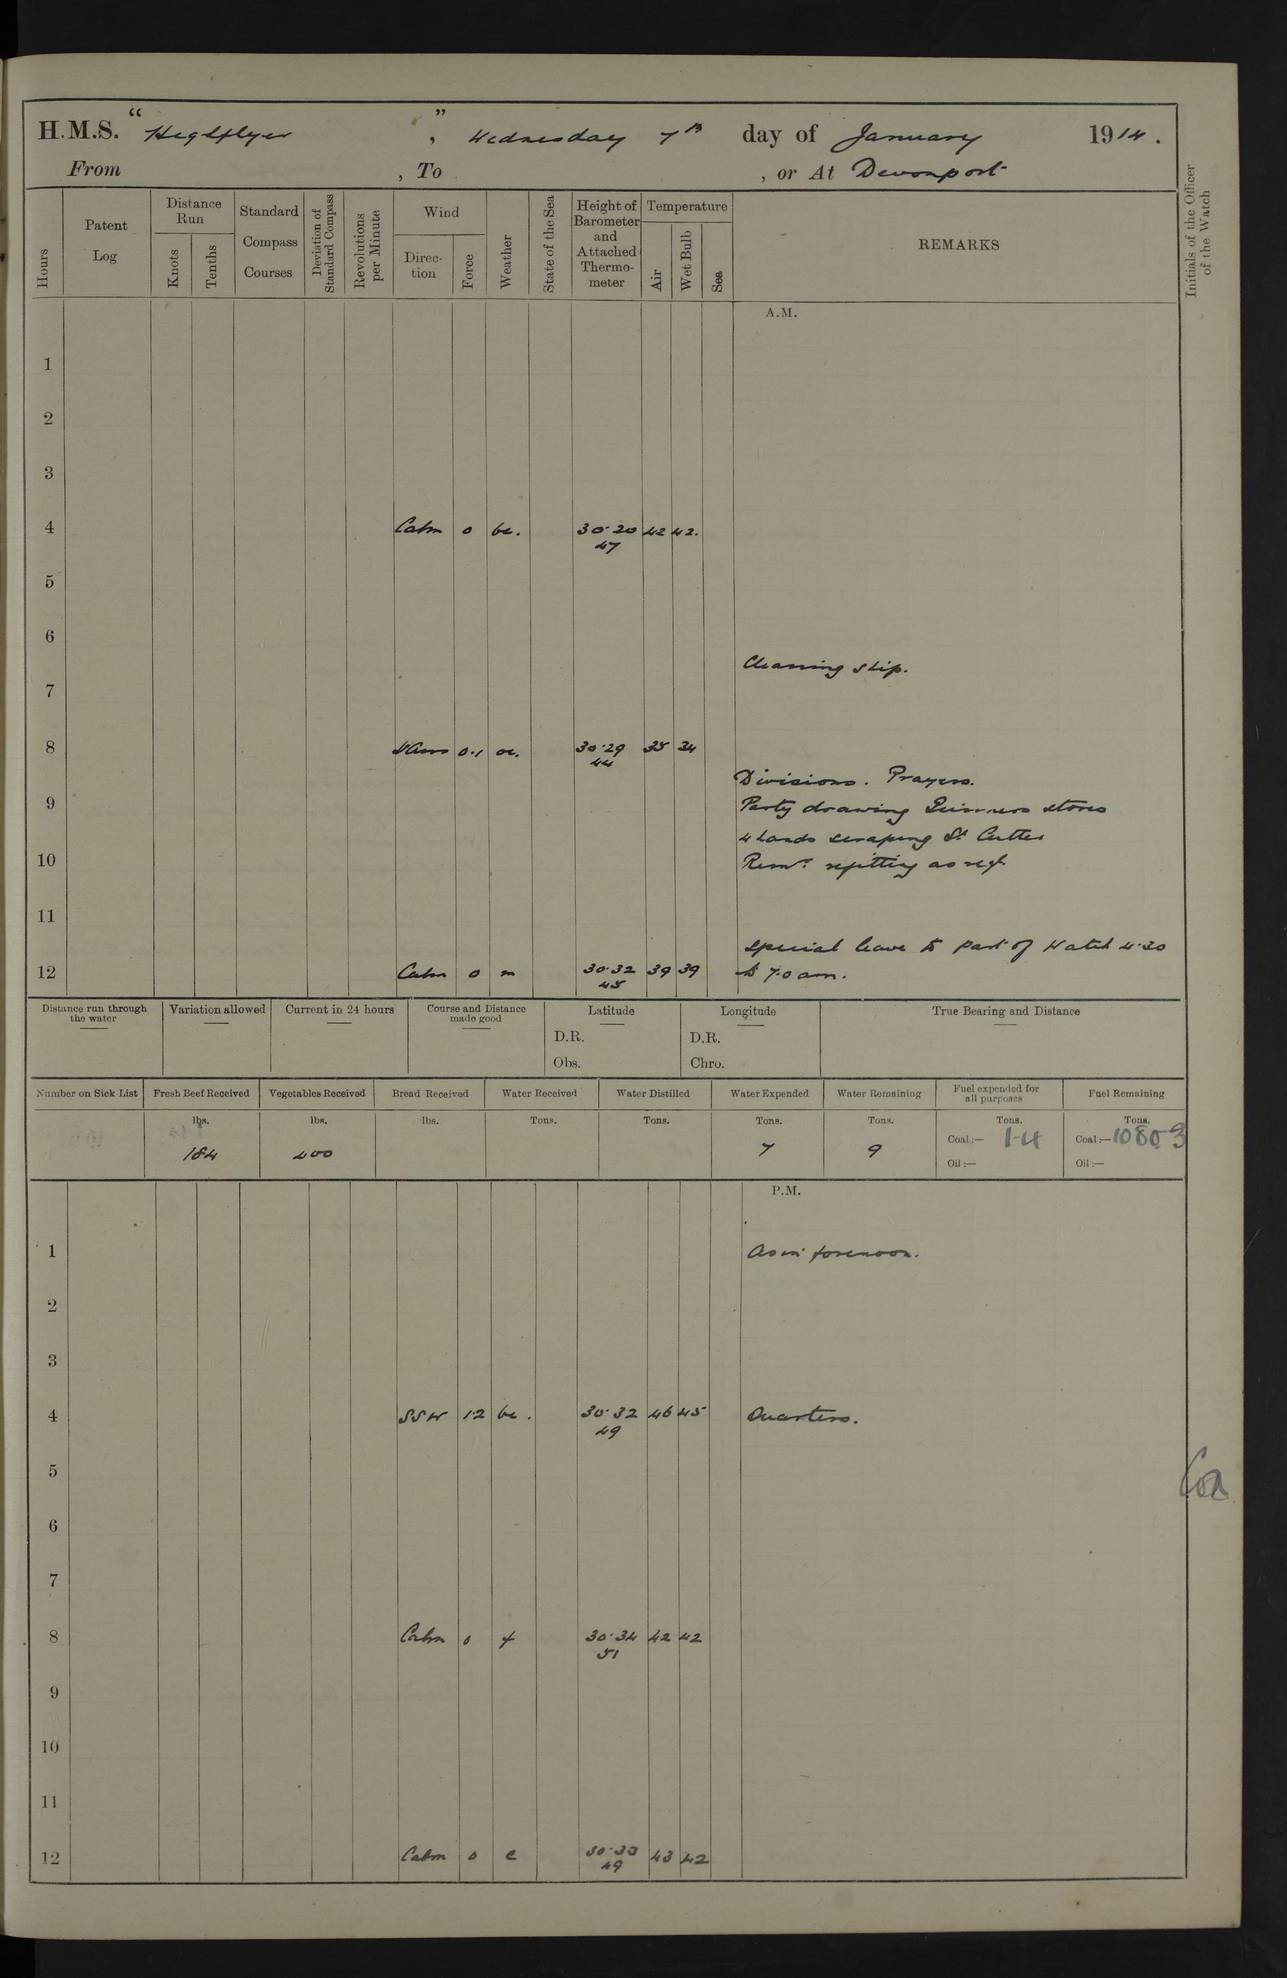 H.M.S. "Highflyer", Wednesday 7th day of January 1914.
From , To , or At Devonport
Hours
Patent Log
Distance Run
Knots
Tenths
Standard Compass Courses
Deviation of Standard Compass
Revolutions per Minute
Wind
Direction
Force
Weather
State of the Sea
Height of Barometer and Attached Thermometer
Temperature
Air
Wet Bulb
Sea
REMARKS
Initials of the Officer of the Watch
A.M.
1
2
3
4 Calm 0 bc. 30.20 42 42.
47
5
6
Cleaning ship.
7
8 0.1 oc. 30.29 35 34
44
Divisions. Prayers.
9 Party drawing Gunners stores
4 hands scraping St Cutter
10 Remr. refitting as req
11
Special leave to part of Watch 4.30
12 Calm 0 m 30.32 39 39 to 7.0 am.
45
Distance run through the water
Variation allowed
Current in 24 hours
Course and Distance made good
Latitude
D.R.
Obs.
Longitude
D.R.
Chro.
True Bearing and Distance
Number on Sick List
Fresh Beef Received
Vegetables Received
Bread Received
Water Received
Water Distilled
Water Expended
Water Remaining
Fuel expended for all purposes
Fuel Remaining
lbs. lbs. lbs. Tons. Tons. Tons. Tons. Tons. Tons.
184 400 7 9 Coal:— 14 Coal:— 1080
Oil:— Oil:—
P.M.
1 As in forenoon.
2
3
4 SSW 1.2 bc. 30.32 46 45 Quarters.
49
5
6
7
8 Calm 0 f 30.34 42 42
51
9
10
11
12 Calm 0 c 30.33 43 42
49